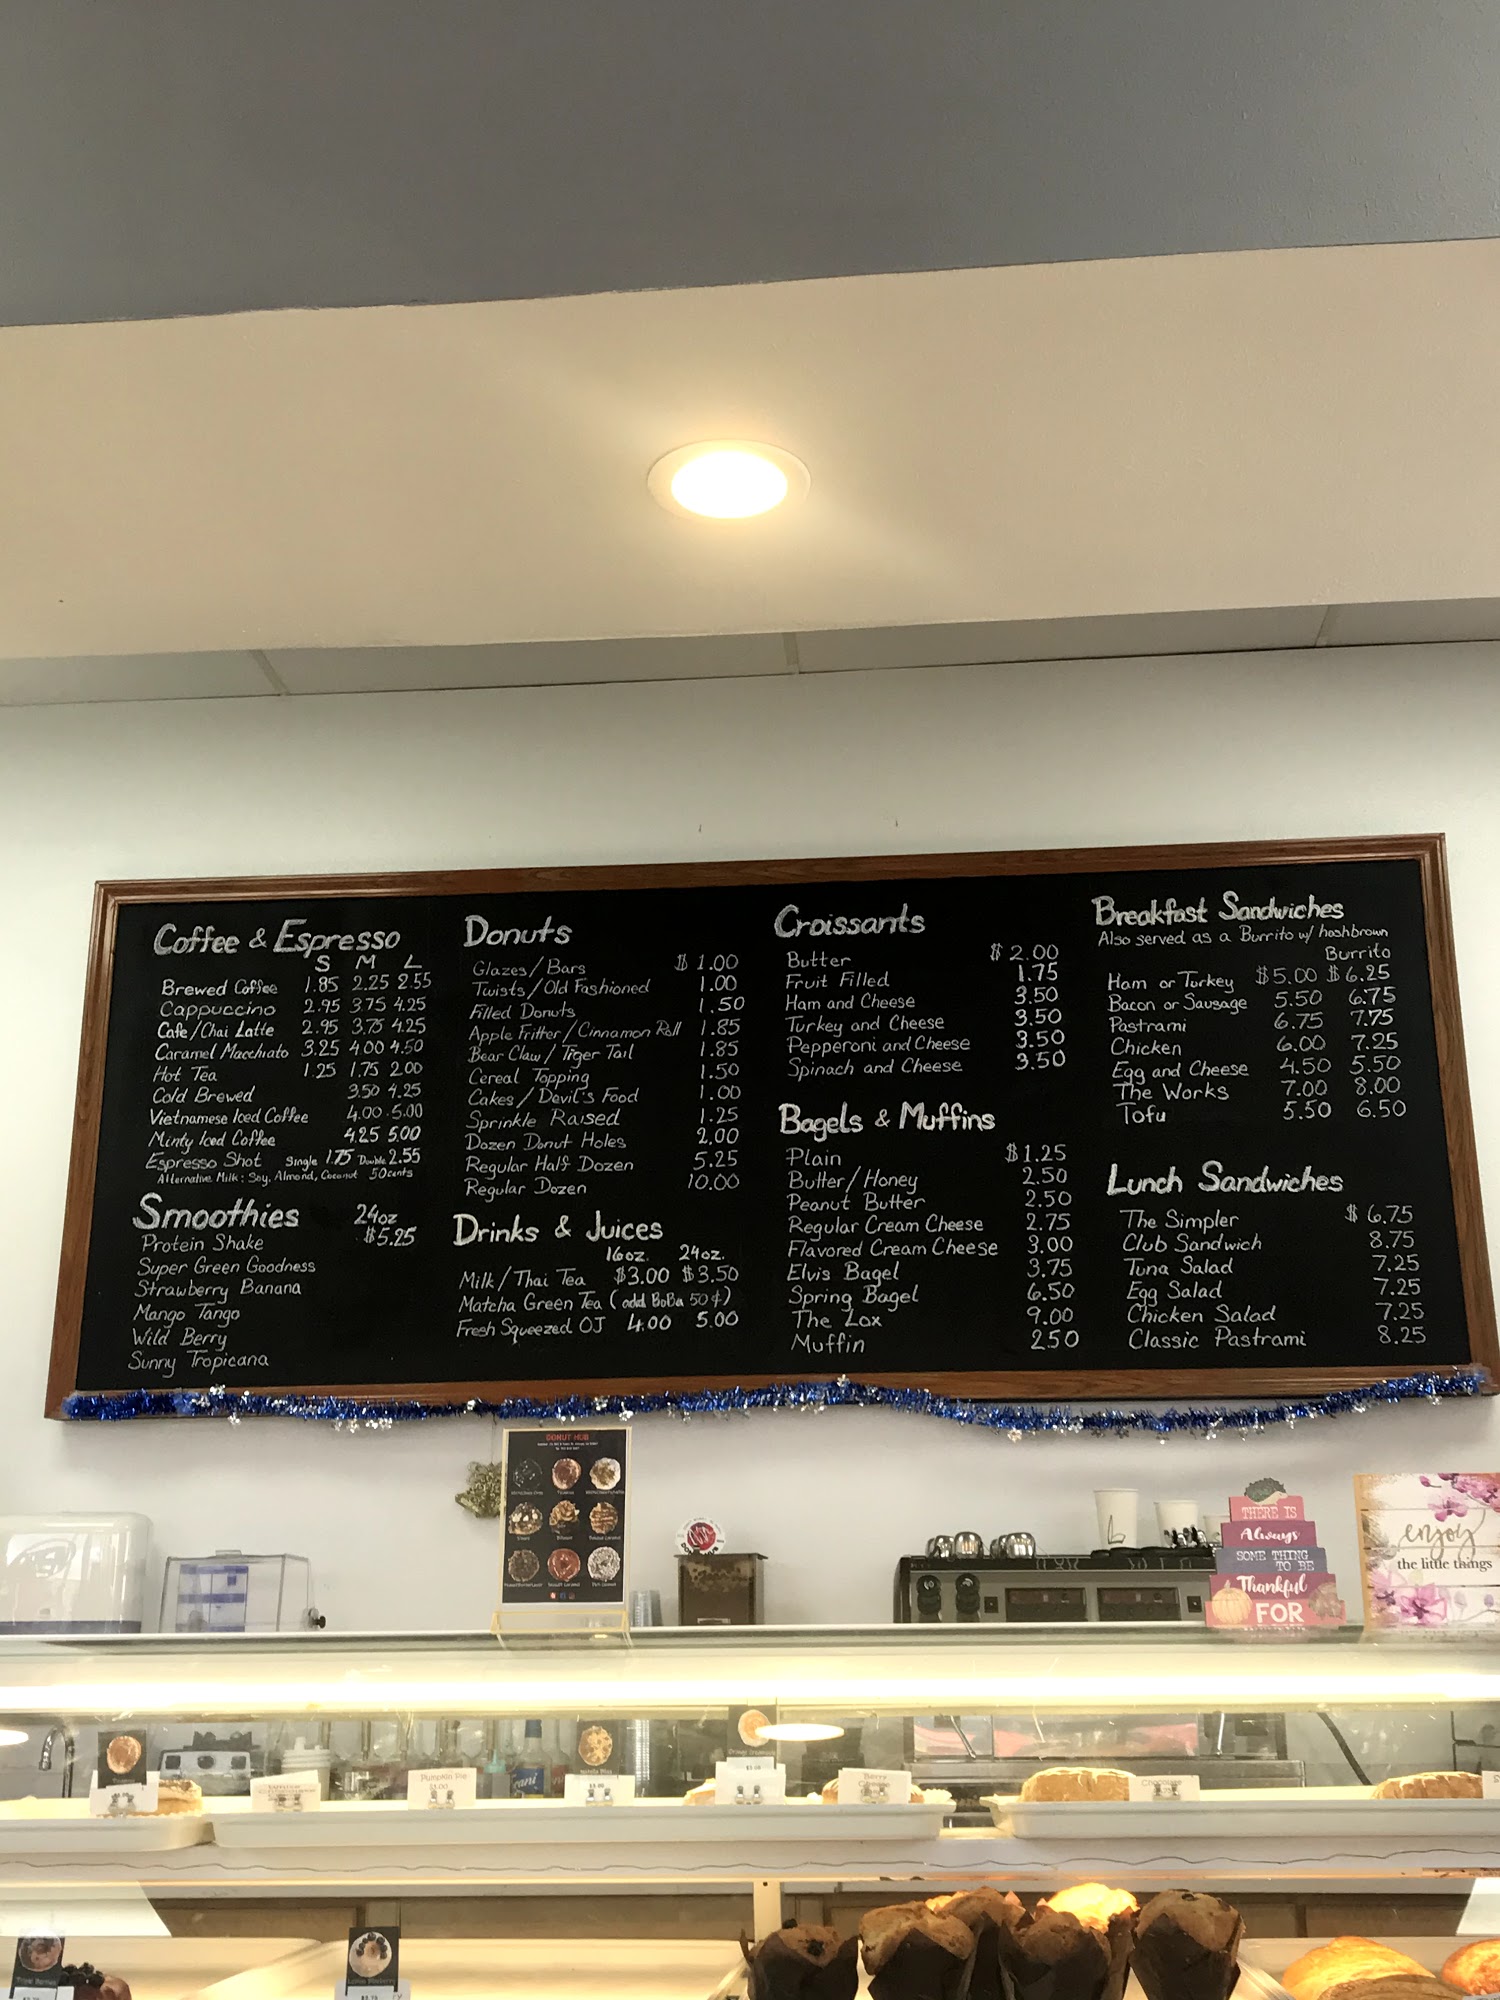 Coffee & Espresso
S M L
Brewed Coffee 1.85 2.25 2.55
Cappuccino 2.95 3.75 4.25
Cafe/Chai Latte 2.95 3.75 4.25
Caramel Macchiato 3.25 4.00 4.50
Hot Tea 1.25 1.75 2.00
Cold Brewed 3.50 4.25
Vietnamese Iced Coffee 4.00 5.00
Minty Iced Coffee 4.25 5.00
Espresso Shot Single 1.75 Double 2.55
Alternative Milk: Soy, Almond, Coconut 50cents
Smoothies 24oz
$5.25
Protein Shake
Super Green Goodness
Strawberry Banana
Mango Tango
Wild Berry
Sunny Tropicana
Donuts
Glazes/Bars $ 1.00
Twists/Old Fashioned 1.00
Filled Donuts 1.50
Apple Fritter/Cinnamon Roll 1.85
Bear Claw/Tiger Tail 1.85
Cereal Topping 1.50
Cakes/Devil's Food 1.00
Sprinkle Raised 1.25
Dozen Donut Holes 2.00
Regular Half Dozen 5.25
Regular Dozen 10.00
Drinks & Juices
16oz. 24oz.
Milk/Thai Tea $3.00 $3.50
Matcha Green Tea (add BoBa 50¢)
Fresh Squeezed OJ 4.00 5.00
Croissants
Butter $ 2.00
Fruit Filled 1.75
Ham and Cheese 3.50
Turkey and Cheese 3.50
Pepperoni and Cheese 3.50
Spinach and Cheese 3.50
Bagels & Muffins
Plain $1.25
Butter/Honey 2.50
Peanut Butter 2.50
Regular Cream Cheese 2.75
Flavored Cream Cheese 3.00
Elvis Bagel 3.75
Spring Bagel 6.50
The Lox 9.00
Muffin 2.50
Breakfast Sandwiches
Also served as a Burrito w/ hashbrown
Burrito
Ham or Turkey $5.00 $6.25
Bacon or Sausage 5.50 6.75
Pastrami 6.75 7.75
Chicken 6.00 7.25
Egg and Cheese 4.50 5.50
The Works 7.00 8.00
Tofu 5.50 6.50
Lunch Sandwiches
The Simpler $ 6.75
Club Sandwich 8.75
Tuna Salad 7.25
Egg Salad 7.25
Chicken Salad 7.25
Classic Pastrami 8.25
DONUT HUB
L
THERE IS
Always
SOME THING
TO BE
Thankful
FOR
enjoy
the little things
Pumpkin Pie